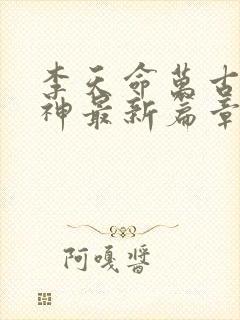 李天命萬古
神最新篇章
阿嘎醬